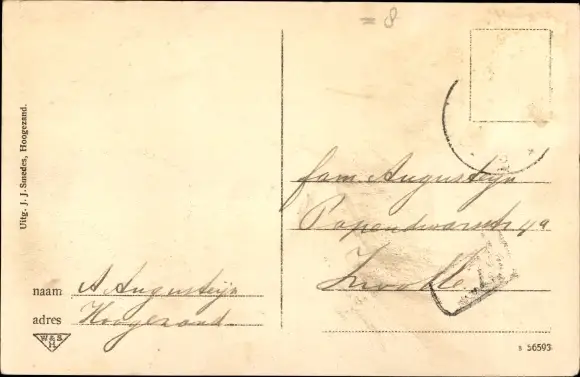 = 8
Uitg. J. J. Smedes, Hoogezand.
fam. Augusteijn
Papendwarsstr 4a
Zwolle
naam A Augusteijn
adres Hoogezand
W & S
H.
s 56593